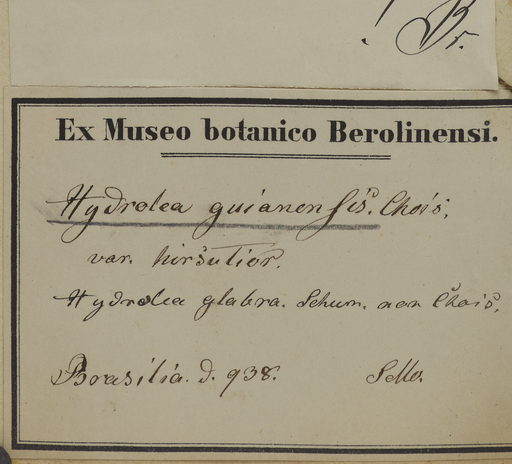 ! Br.
Ex Museo botanico Berolinensi.
Hydrolea guianensis. Chois.
var. hirsutior.
Hydrolea glabra. Schum. non Chois.
Brasilia. d. 938. Sello.